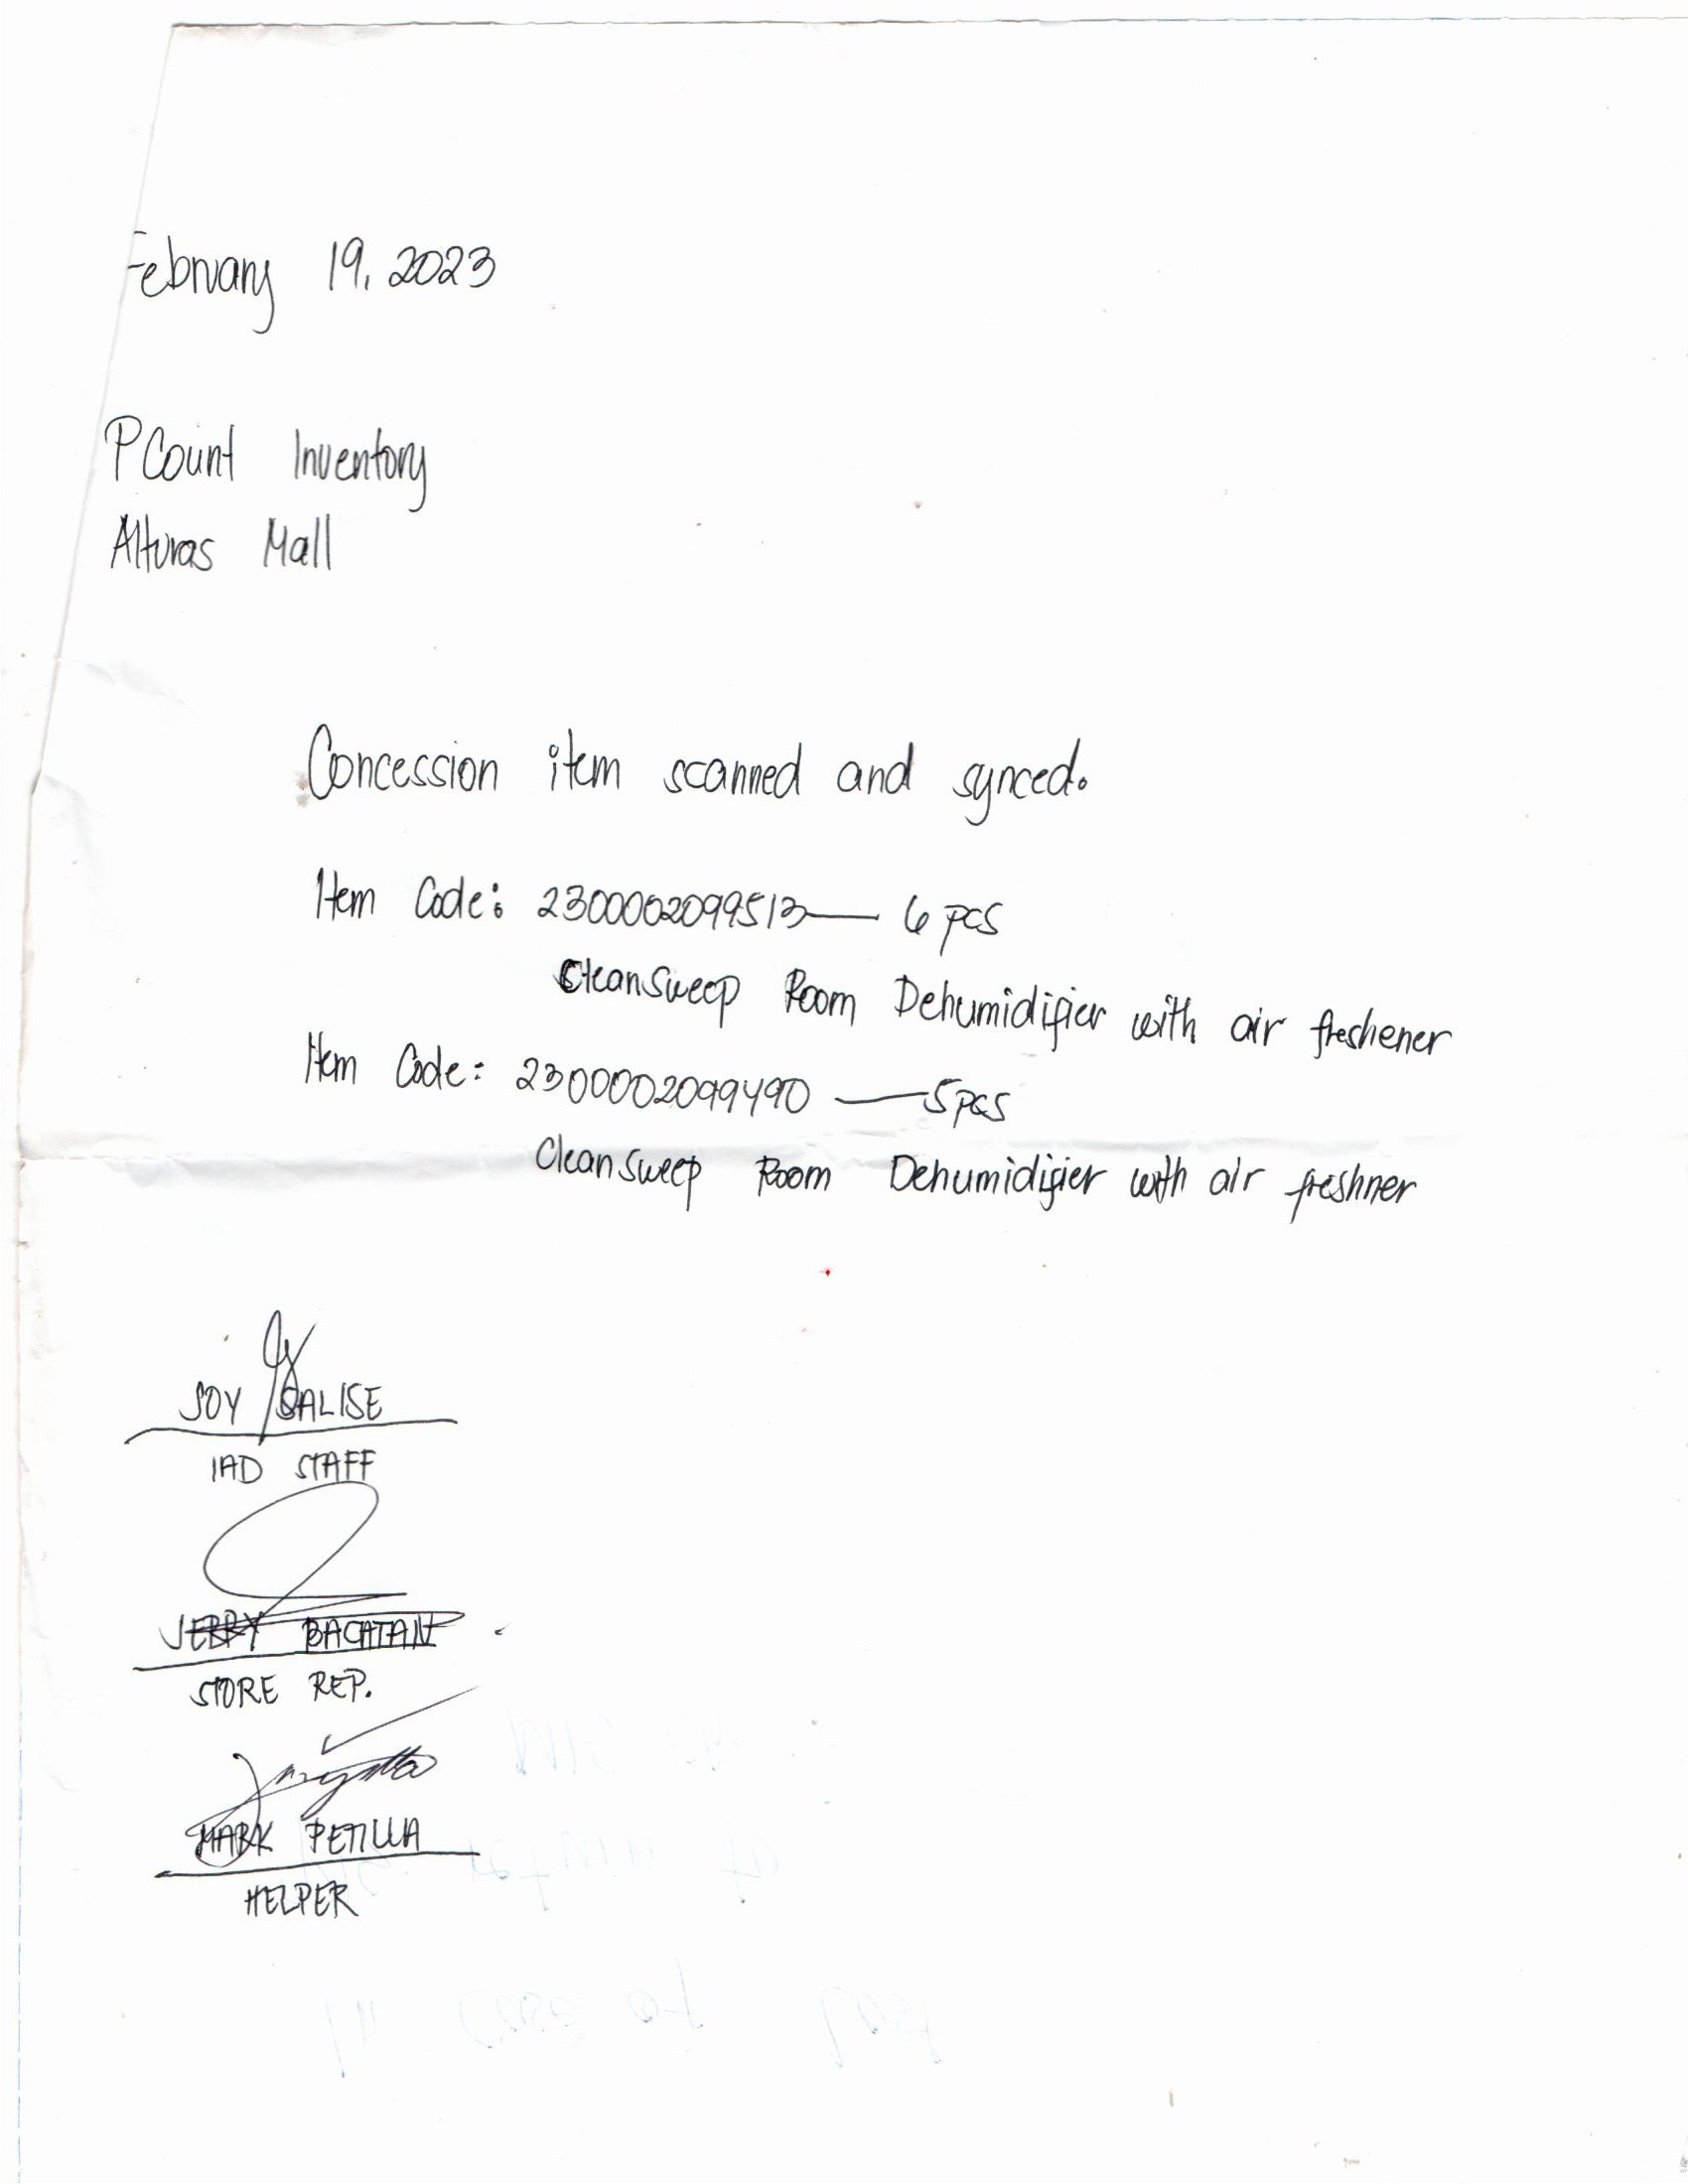 February 19, 2023
PCount Inventory
Alturas Mall
Concession item scanned and synced.
Item Code: 2300002099513 — 6 pcs
CleanSweep Room Dehumidifier with air freshener
Item Code: 2300002099490 — 5 pcs
CleanSweep Room Dehumidifier with air freshner
JOY SALISE
IAD STAFF
JERRY BACATAN
STORE REP.
MARK PETILLA
HELPER